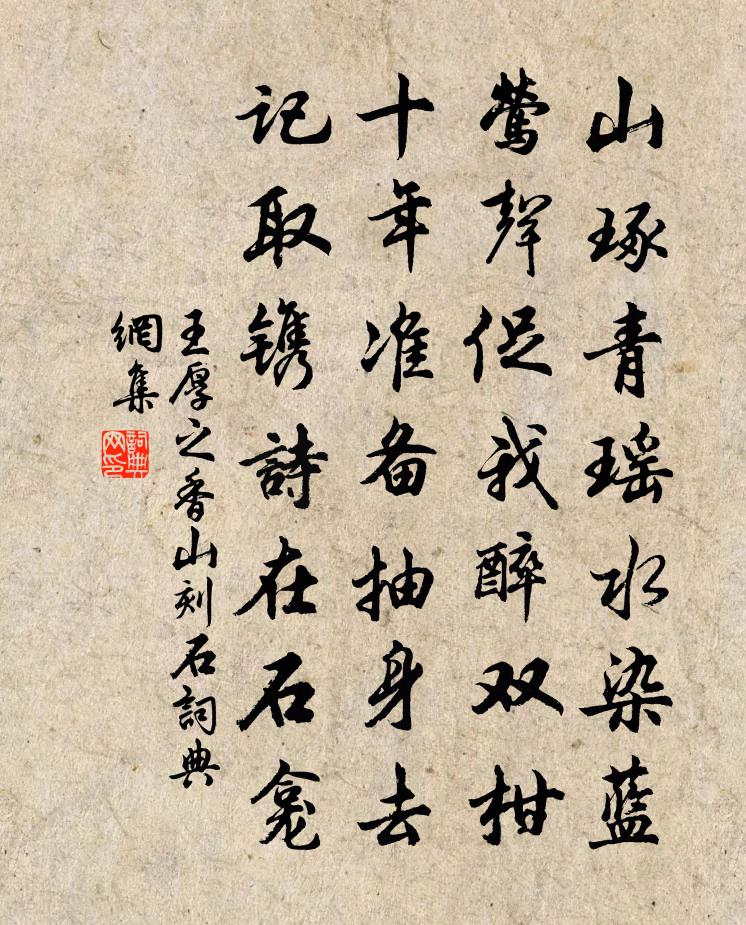 山琢青瑶水染藍
鶯聲促我醉双柑
十年准备抽身去
记取镌詩在石龛
王厚之香山刻石詞典
網集
詞典
网印